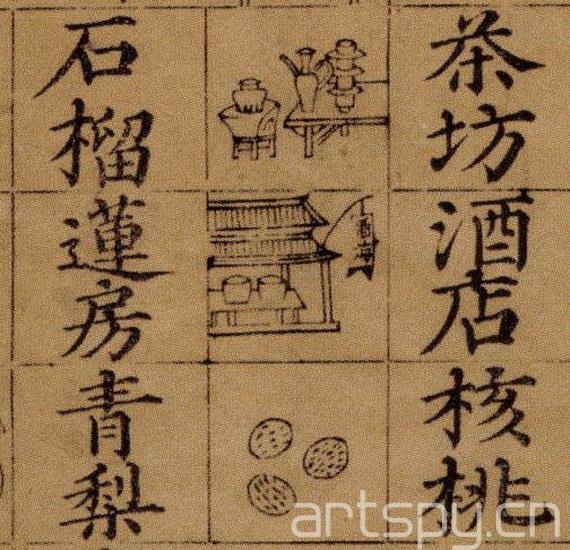 茶坊
酒店
核桃
石榴
蓮房
青梨
artspy.cn